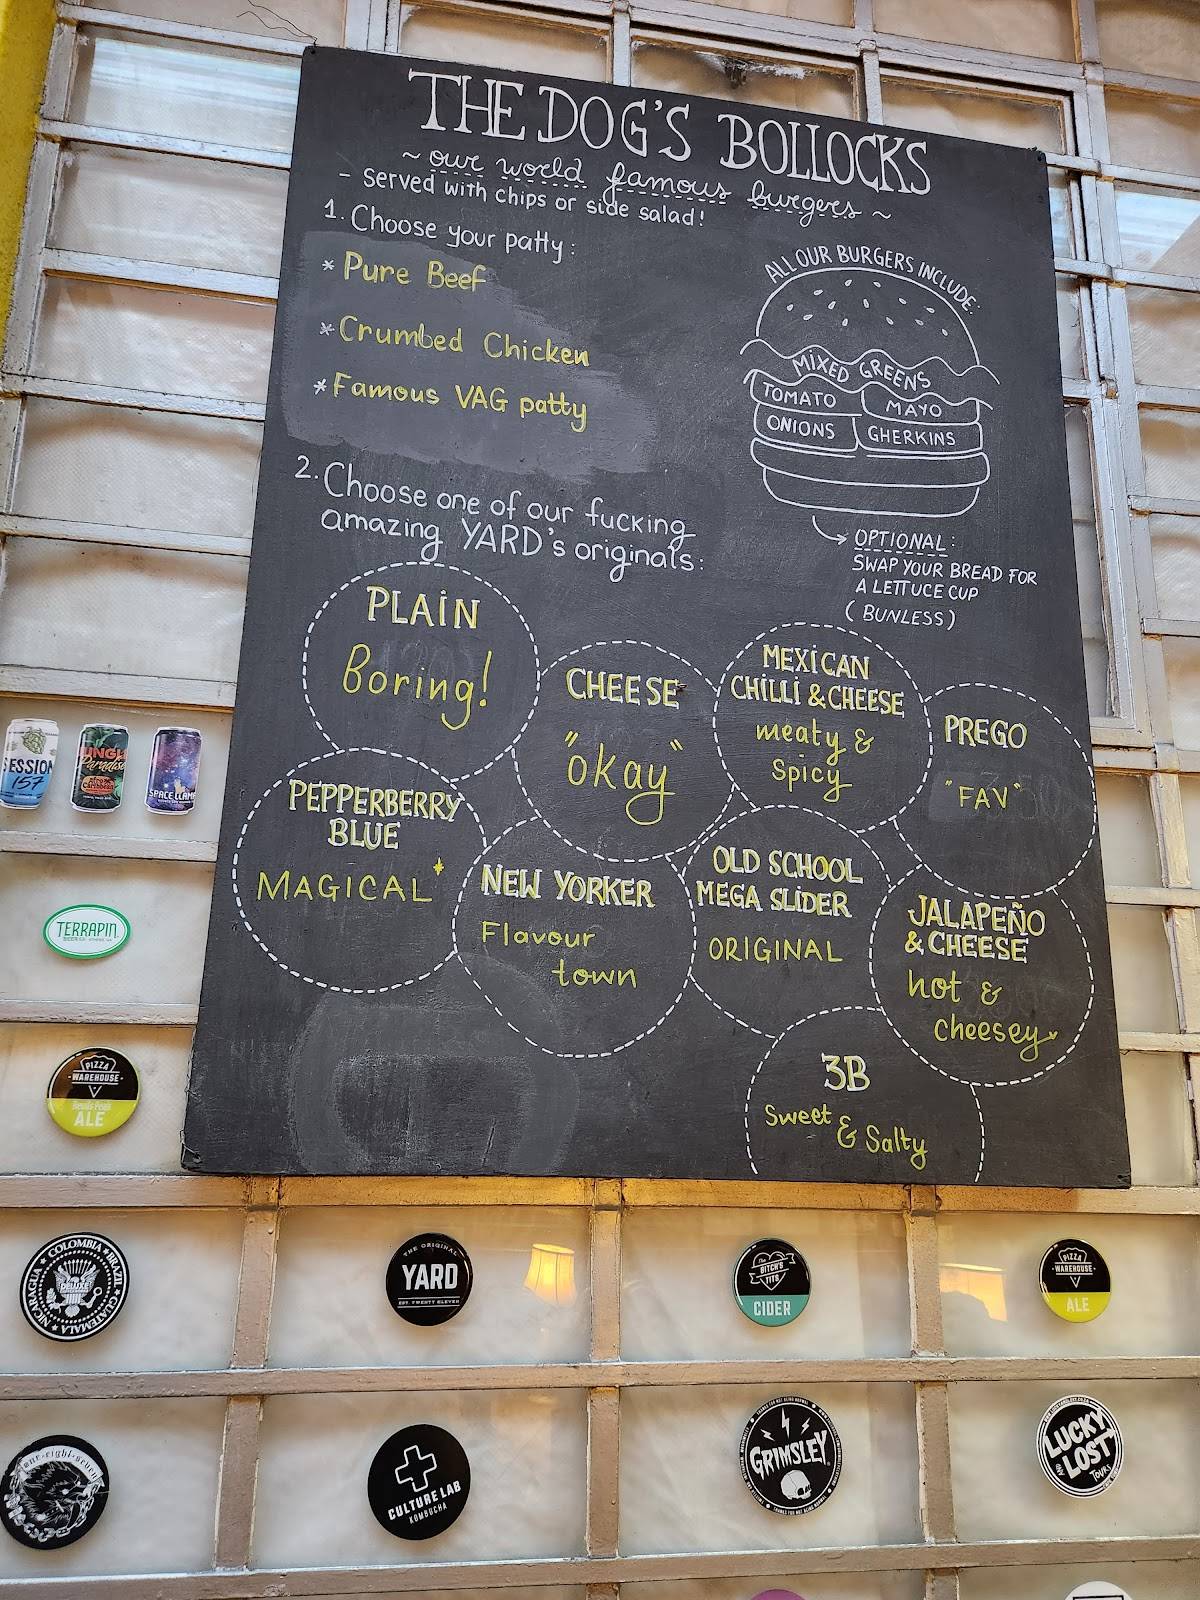 THE DOG'S BOLLOCKS
~ our world famous burgers ~
- Served with chips or side salad!
1. Choose your patty:
* Pure Beef
* Crumbed Chicken
* Famous VAG patty
ALL OUR BURGERS INCLUDE:
MIXED GREENS
TOMATO
MAYO
ONIONS
GHERKINS
OPTIONAL:
SWAP YOUR BREAD FOR
A LETTUCE CUP
(BUNLESS)
2. Choose one of our fucking
amazing YARD's originals:
PLAIN
Boring!
CHEESE
"okay"
MEXICAN
CHILLI & CHEESE
meaty &
spicy
PREGO
"FAV"
PEPPERBERRY
BLUE
MAGICAL
NEW YORKER
Flavour
town
OLD SCHOOL
MEGA SLIDER
ORIGINAL
JALAPEÑO
& CHEESE
hot &
cheesey
3B
Sweet
& Salty
SESSION
157
JUNGLE
Paradise
Afro
Caribbean
SPACE LLAMA
TERRAPIN
BEER CO. ATHENS, GA
PIZZA
WAREHOUSE
ALE
COLOMBIA ★ BRAZIL ★ GUATEMALA ★ NICARAGUA
DELUXE
THE ORIGINAL
YARD
EST. TWENTY ELEVEN
The
BITCH'S
TITS
CIDER
PIZZA
WAREHOUSE
ALE
one-eight-seven
CULTURE LAB
KOMBUCHA
GRIMSLEY
LUCKY
AND LOST
TOURS